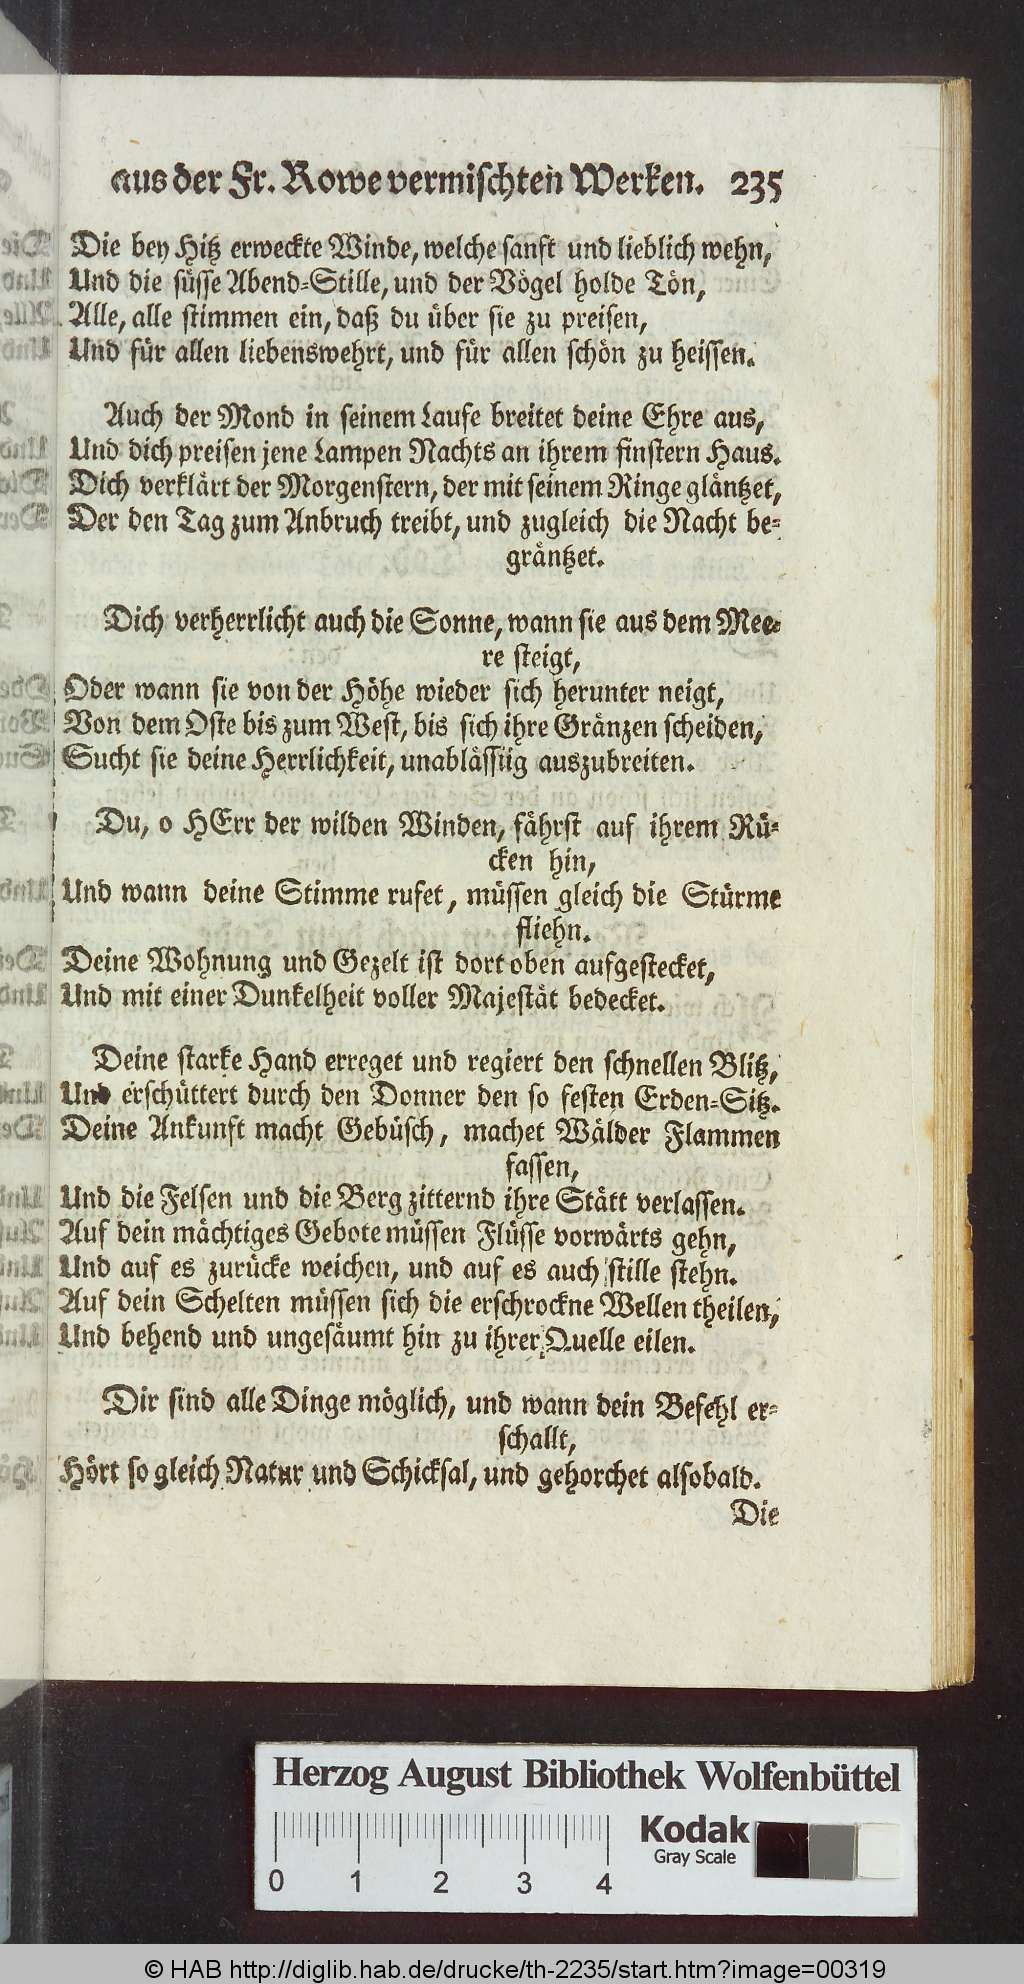 aus der Fr. Rowe vermischten Werken. 235
Die bey Hitz erweckte Winde, welche sanft und lieblich wehn,
Und die süsse Abend-Stille, und der Vögel holde Tön,
Alle, alle stimmen ein, daß du über sie zu preisen,
Und für allen liebenswehrt, und für allen schön zu heissen.
Auch der Mond in seinem Laufe breitet deine Ehre aus,
Und dich preisen jene Lampen Nachts an ihrem finstern Haus.
Dich verklärt der Morgenstern, der mit seinem Ringe gläntzet,
Der den Tag zum Anbruch treibt, und zugleich die Nacht be-
gräntzet.
Dich verherrlicht auch die Sonne, wann sie aus dem Mee-
re steigt,
Oder wann sie von der Höhe wieder sich herunter neigt,
Von dem Oste bis zum West, bis sich ihre Gränzen scheiden,
Sucht sie deine Herrlichkeit, unabläßig auszubreiten.
Du, o HErr der wilden Winden, fährst auf ihrem Rü-
cken hin,
Und wann deine Stimme rufet, müssen gleich die Stürme
fliehn.
Deine Wohnung und Gezelt ist dort oben aufgestecket,
Und mit einer Dunkelheit voller Majestät bedecket.
Deine starke Hand erreget und regiert den schnellen Blitz,
Und erschüttert durch den Donner den so festen Erden-Sitz.
Deine Ankunft macht Gebüsch, machet Wälder Flammen
fassen,
Und die Felsen und die Berg zitternd ihre Stätt verlassen.
Auf dein mächtiges Gebote müssen Flüsse vorwärts gehn,
Und auf es zurücke weichen, und auf es auch stille stehn.
Auf dein Schelten müssen sich die erschrockne Wellen theilen,
Und behend und ungesäumt hin zu ihrer Quelle eilen.
Dir sind alle Dinge möglich, und wann dein Befehl er-
schallt,
Hört so gleich Natur und Schicksal, und gehorchet alsobald.
Die
Herzog August Bibliothek Wolfenbüttel
Kodak
Gray Scale
0 1 2 3 4
© HAB http://diglib.hab.de/drucke/th-2235/start.htm?image=00319